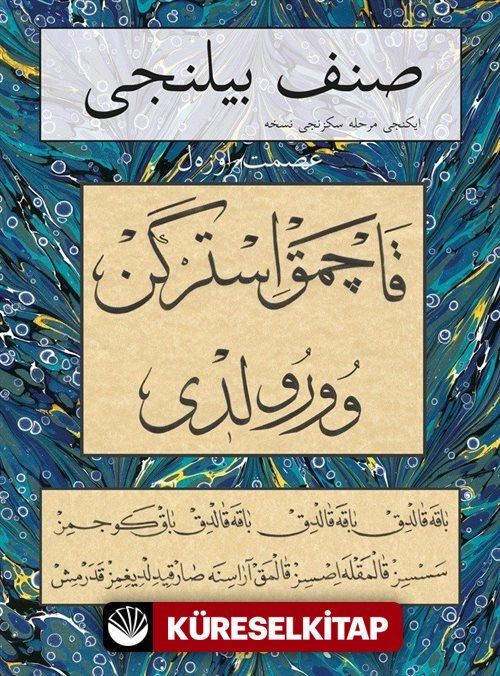 صنف بیلنجی
ایكنجی مرحله سكزنجی نسخه
عصمت اوزەل
قاچمق ایستركن
وورولدی
باقه قالدق باقه قالدق باق كوجمز
سسسز قالمقله اصسز قالمق آراسنه صارقیدلدیغمز قدرمش
KÜRESELKİTAP